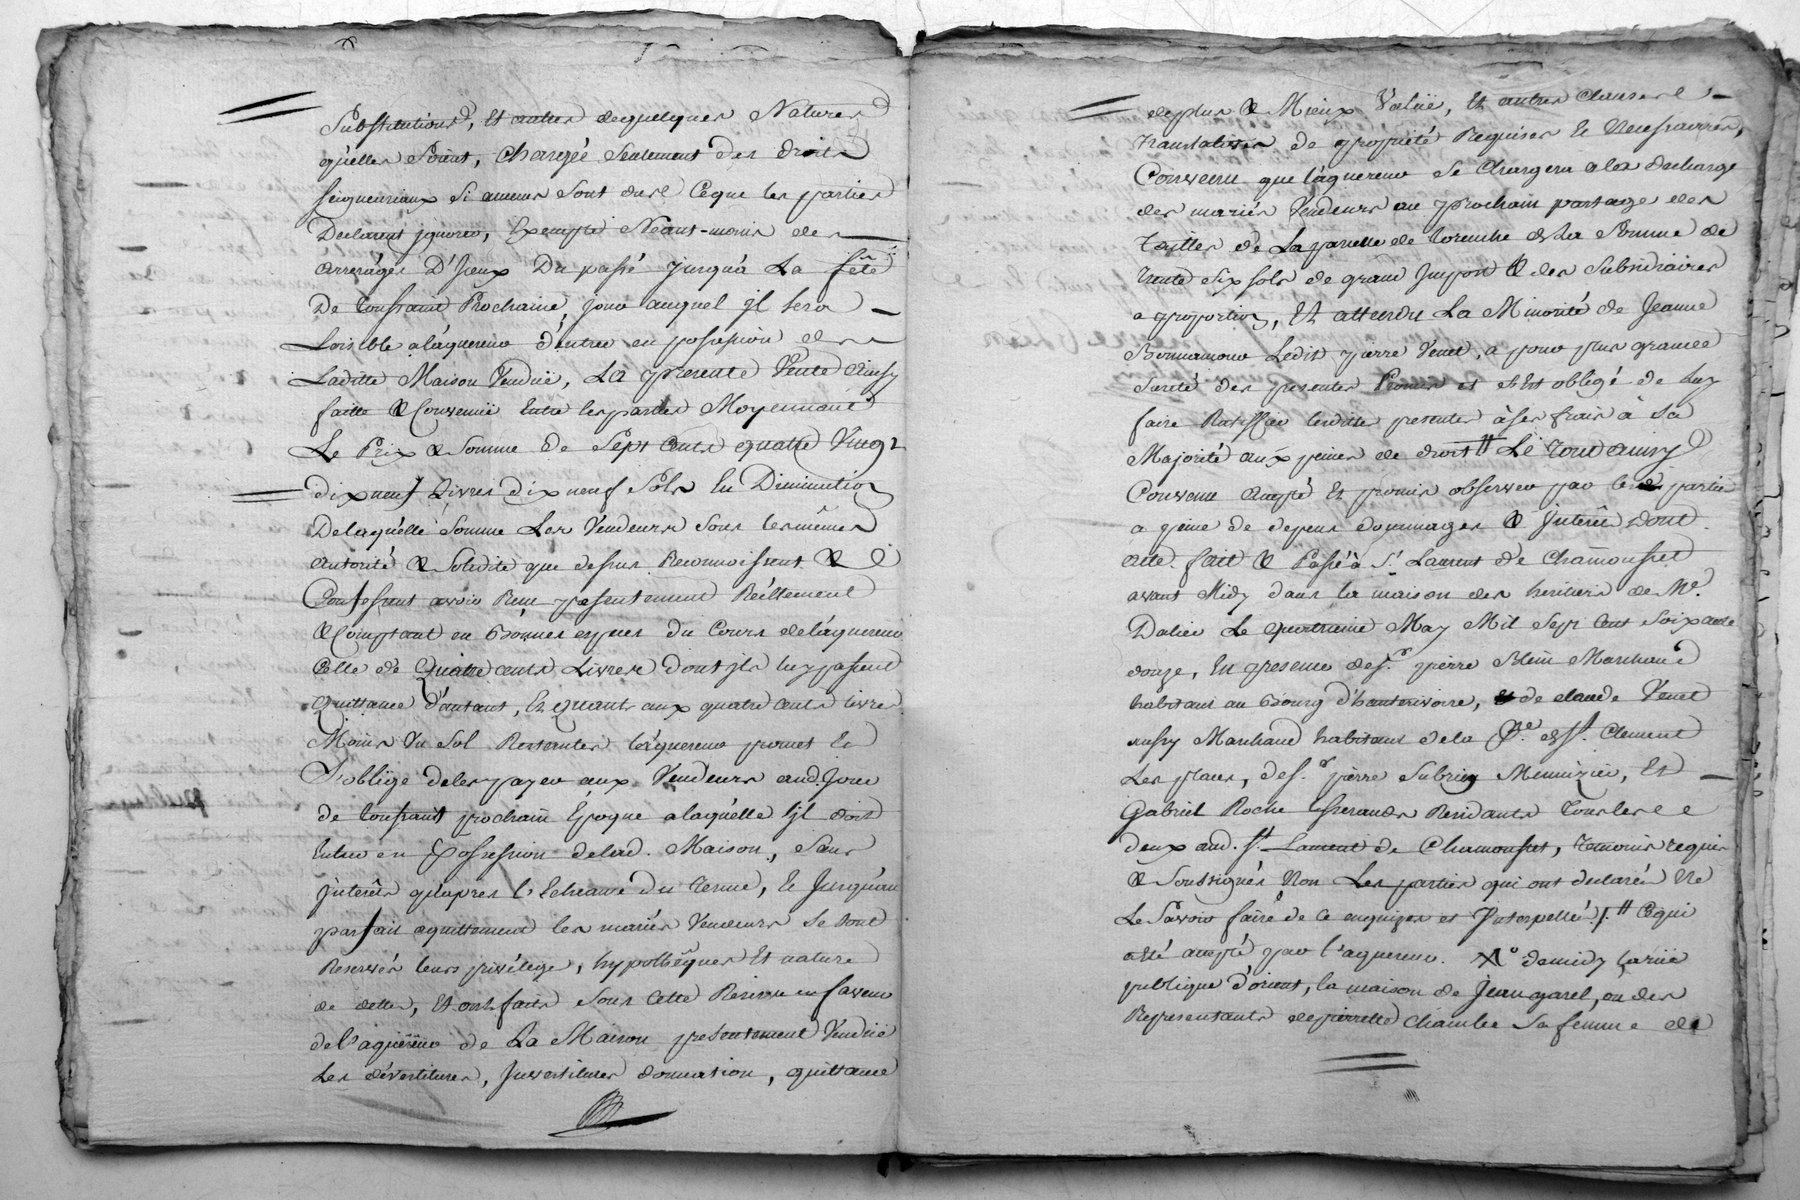 Substitutions, Et autres dequelques Natures
qu'elles Soient, Chargée Seulement des droits
seigneuriaux Si aucuns Sont dus Ceque les parties
Declarent jgnorer, Exempte Néant-moins de
arrerages D'Jceux Du passé jusqu'a La fête
De toussaint Prochaine, jour auquel jl sera
Loisible a l'aquereur d'entrer en possession de
Laditte Maison Vendüe, La presente Vente ainsy
faitte & Convenüe Entre les parties Moyennant
Le Prix & Somme de Sept Cents quatre Vingt
dix neuf Livres dix neuf Sols En Diminution
Delaquelle Somme Les Vendeurs Sous les mêmes
autorité & Solidité que dessus Reconnoissent &
Confessent avoir Reçu presentement Réellement
& Comptant en Bonnes especes du Cours de l'aquereur
Celle de Quatre cents Livres dont jls luy passent
Quittance d'autant, Et Quant aux quatre cents livres
Moins Un Sol Restantes l'aquereur promet Et
S'oblige deles payer aux Vendeurs aud. Jour
de toussaint prochain Epoque a laquelle Jl doit
Entrer en Possession delad. Maison, Sans
jnterêts qu'apres l'Echeance du terme, Et Jusqu'au
parfait aquittement les mariés Vendeurs Se Sont
Reservés leurs privilege, hypothêques Et nature
de dettes, Et ont faits Sous Cette Reserve en faveur
de l'aquereur de La Maison presentement Vendüe
Les dévestitures, Jnvestitures donnation, quittance
deplus & Mieux Value, Et autres Clauses
translatives de proprieté Requises Et Necessaires,
Convenu que l'aquereur Se Chargera a la decharge
des mariés Vendeurs au prochain partage des
tailles de La parcelle de de La Somme de
trente Six sols de grand Jmpost & des Subsidiaires
a proportion, Et attendu La Minorité de Jeanne
Ledit pierre Venet, a pour plus grande
Sureté des presentes Promis et s'Est obligé de luy
faire Ratiffier lesdittes presentes à Ses frais à Sa
Majorité aux peines de droit # Le tout ainsy
Convenu accepté Et promis observer par les parties
a peine de depens dommages & Jnterêts dont
acte fait & Passé à St. Laurent de Chamousset
avant Midy dans la maison des heritiers de Me.
Dalier Le quatrieme May Mil Sept Cent Soixante
douze, En presence de sr. pierre Marchand
habitant au Bourg d'hauterivoire, de claude Venet
aussy Marchand habitant dela Psse. de St. Clement
Les places, de sr. pierre Subrin Menuizier, Et
Gabriel Roche tisserands Residants tous les
deux aud. St. Laurent de Chamousset, temoins requis
& Soussignés Non Les parties qui ont declarés Ne
Le Savoir faire de ce enquizes et Jnterpellés /. # Cequi
a êté accepté par l'aquereur. de midy la rüe
publique d'orient, la maison de Jean garel, ou des
Representants de pierrette chambe Sa femme de